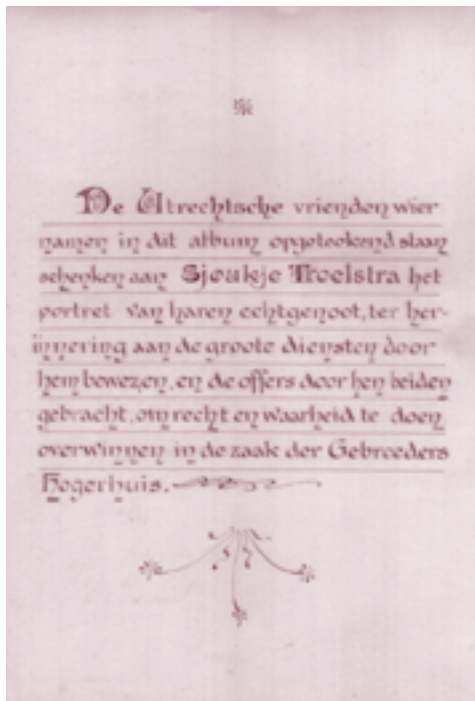 De Utrechtsche vrienden wier
namen in dit album opgeteekend staan
schenken aan Sjoukje Troelstra het
portret van haren echtgenoot, ter her-
innering aan de groote diensten door
hem bewezen, en de offers door hen beiden
gebracht, om recht en waarheid te doen
overwinnen in de zaak der Gebroeders
Hogerhuis.